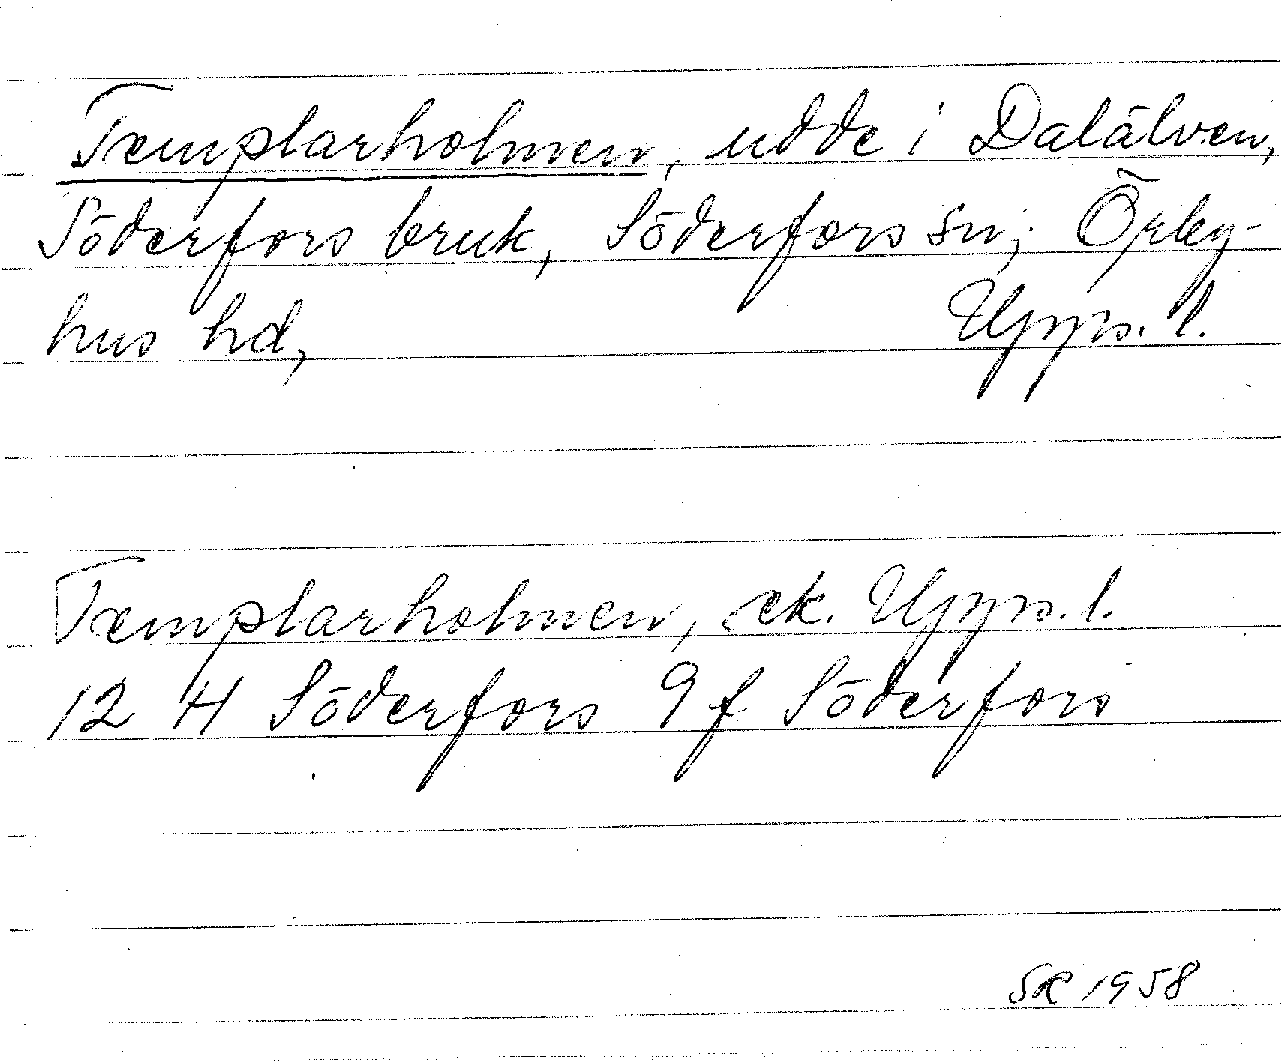 Templarholmen, udde i Dalälven,
Söderfors bruk, Söderfors sn, Örby-
hus hd, Upps. l.
Templarholmen, ek. Upps. l.
12 H Söderfors 9 f Söderfors
SR 1958